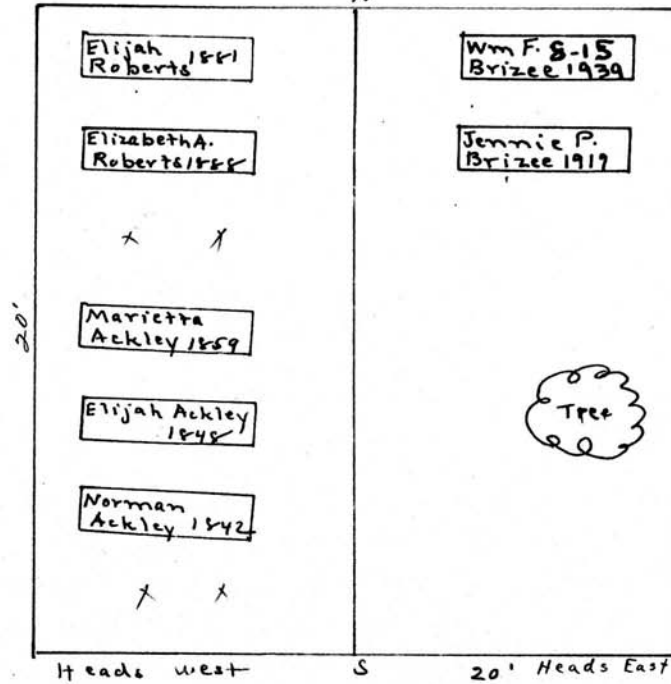 Elijah 1881
Roberts
Elizabeth A.
Roberts 1888
x x
Marietta
Ackley 1859
Elijah Ackley
1848
Norman
Ackley 1842
x x
Wm F. 8-15
Brizee 1939
Jennie P.
Brizee 1919
Tree
20'
Heads west S 20' Heads East